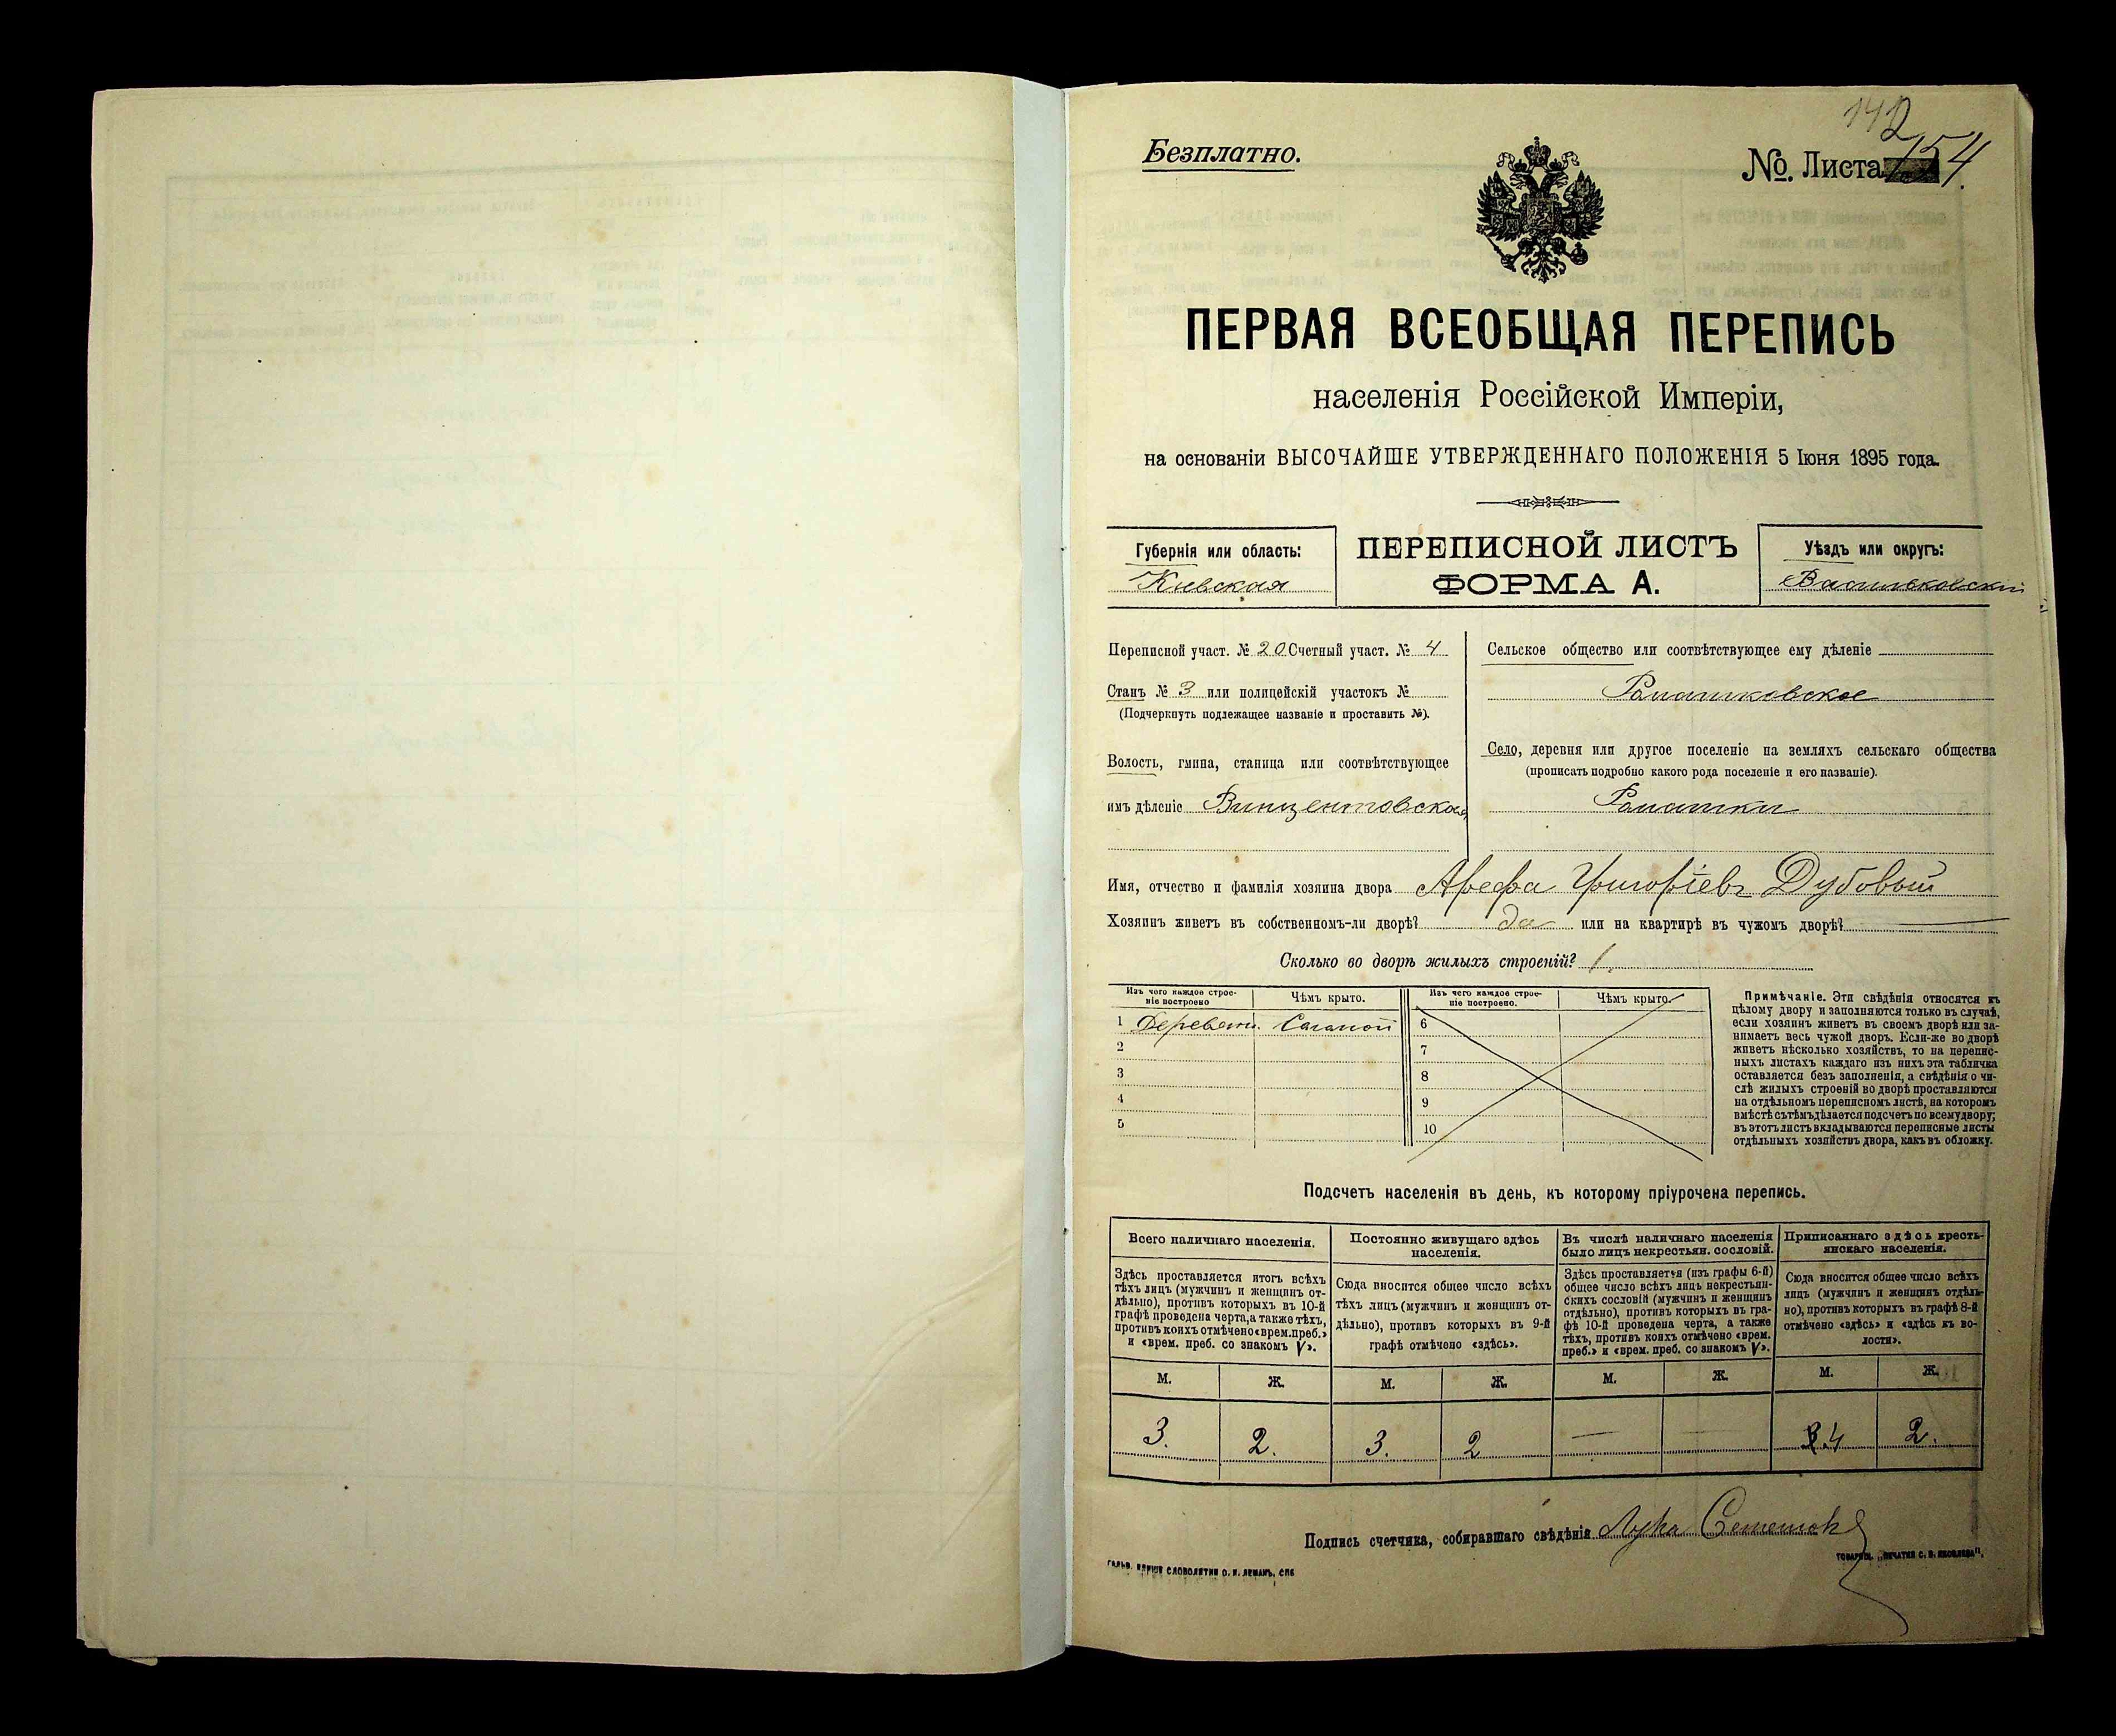 142
Безплатно.
№. Листа 154.
ПЕРВАЯ ВСЕОБЩАЯ ПЕРЕПИСЬ
населенія Россійской Имперіи,
на основаніи ВЫСОЧАЙШЕ УТВЕРЖДЕННАГО ПОЛОЖЕНІЯ 5 Іюня 1895 года.
Губернія или область:
Кіевская
ПЕРЕПИСНОЙ ЛИСТЪ
ФОРМА А.
Уѣздъ или округъ:
Васильковскій
Переписной участ. № 20 Счетный участ. № 4
Станъ № 3 или полицейскій участокъ №
(Подчеркнуть подлежащее названіе и проставить №).
Волость, гмина, станица или соотвѣтствующее
имъ дѣленіе Винцентовская
Сельское общество или соотвѣтствующее ему дѣленіе
Ромашковское
Село, деревня или другое поселеніе на земляхъ сельскаго общества
(прописать подробно какого рода поселеніе и его названіе).
Ромашки
Имя, отчество и фамилія хозяина двора Арефа Григоріевъ Дубовый
Хозяинъ живетъ въ собственномъ-ли дворѣ? да или на квартирѣ въ чужомъ дворѣ?
Сколько во дворѣ жилыхъ строеній? 1
Изъ чего каждое строе-
ніе построено
Чѣмъ крыто.
1 Деревян. Соломой
2
3
4
5
Изъ чего каждое строе-
ніе построено.
Чѣмъ крыто.
6
7
8
9
10
Примѣчаніе. Эти свѣдѣнія относятся къ
цѣлому двору и заполняются только въ случаѣ,
если хозяинъ живетъ въ своемъ дворѣ или за-
нимаетъ весь чужой дворъ. Если-же во дворѣ
живетъ нѣсколько хозяйствъ, то на перепис-
ныхъ листахъ каждаго изъ нихъ эта табличка
оставляется безъ заполненія, а свѣдѣнія о чи-
слѣ жилыхъ строеній во дворѣ проставляются
на отдѣльномъ переписномъ листѣ, на которомъ
вмѣстѣ съ тѣмъ дѣлается подсчетъ по всему двору;
въ этотъ листъ вкладываются переписные листы
отдѣльныхъ хозяйствъ двора, какъ въ обложку.
Подсчетъ населенія въ день, къ которому пріурочена перепись.
Всего наличнаго населенія.
Здѣсь проставляется итогъ всѣхъ
тѣхъ лицъ (мужчинъ и женщинъ от-
дѣльно), противъ которыхъ въ 10-й
графѣ проведена черта, а также тѣхъ,
противъ коихъ отмѣчено «врем. преб.»
и «врем. преб. со знакомъ V».
М. Ж.
3. 2.
Постоянно живущаго здѣсь
населенія.
Сюда вносится общее число всѣхъ
тѣхъ лицъ (мужчинъ и женщинъ от-
дѣльно), противъ которыхъ въ 9-й
графѣ отмѣчено «здѣсь».
М. Ж.
3. 2
Въ числѣ наличнаго населенія
было лицъ некрестьян. сословій.
Здѣсь проставляется (изъ графы 6-й)
общее число всѣхъ лицъ некрестьян-
скихъ сословій (мужчинъ и женщинъ
отдѣльно), противъ которыхъ въ гра-
фѣ 10-й проведена черта, а также
тѣхъ, противъ коихъ отмѣчено «врем.
преб.» и «врем. преб. со знакомъ V».
М. Ж.
— —
Приписаннаго здѣсь кресть-
янскаго населенія.
Сюда вносится общее число всѣхъ
лицъ (мужчинъ и женщинъ отдѣль-
но), противъ которыхъ въ графѣ 8-й
отмѣчено «здѣсь» и «здѣсь къ во-
лости».
М. Ж.
4 2.
Подпись счетчика, собиравшаго свѣдѣнія Лука
СЛОВОЛИТНИ О. И. ЛЕМАНЪ, СПБ
ТОВАРИЩ. „ПЕЧАТНЯ С. П. ЯКОВЛЕВА".